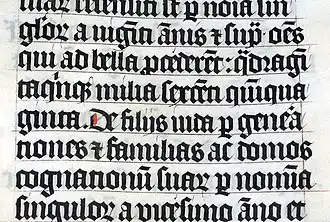 suar recensiti st p noia sin
gloꝝ a vigīti ānis ⁊ sup̄ oēs
qui ad bella ꝓcederēt: q̄dragī
ta q̄nq milia sexcēti quīqua
ginta. De filiis iuda p geneꝛa
tiones ⁊ familias ac domos
cognationū suar p nomīa
singuloꝝ a vicesimo āno et